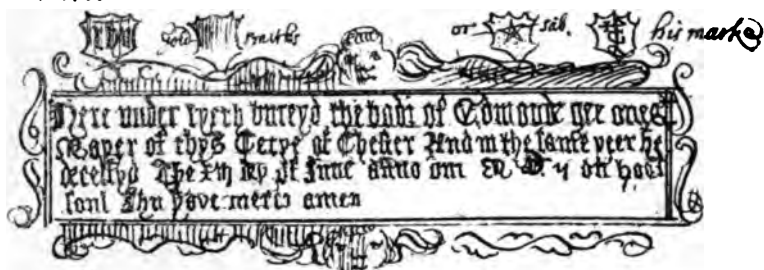 or sab. his marke
Here under lyeth bureyd the bodi of Edmond gee ones
Mayer of thys Cetye of Chester And in the same yeer he
decessyd The day of June anno om M on hoos
soul Jhu have merci amen